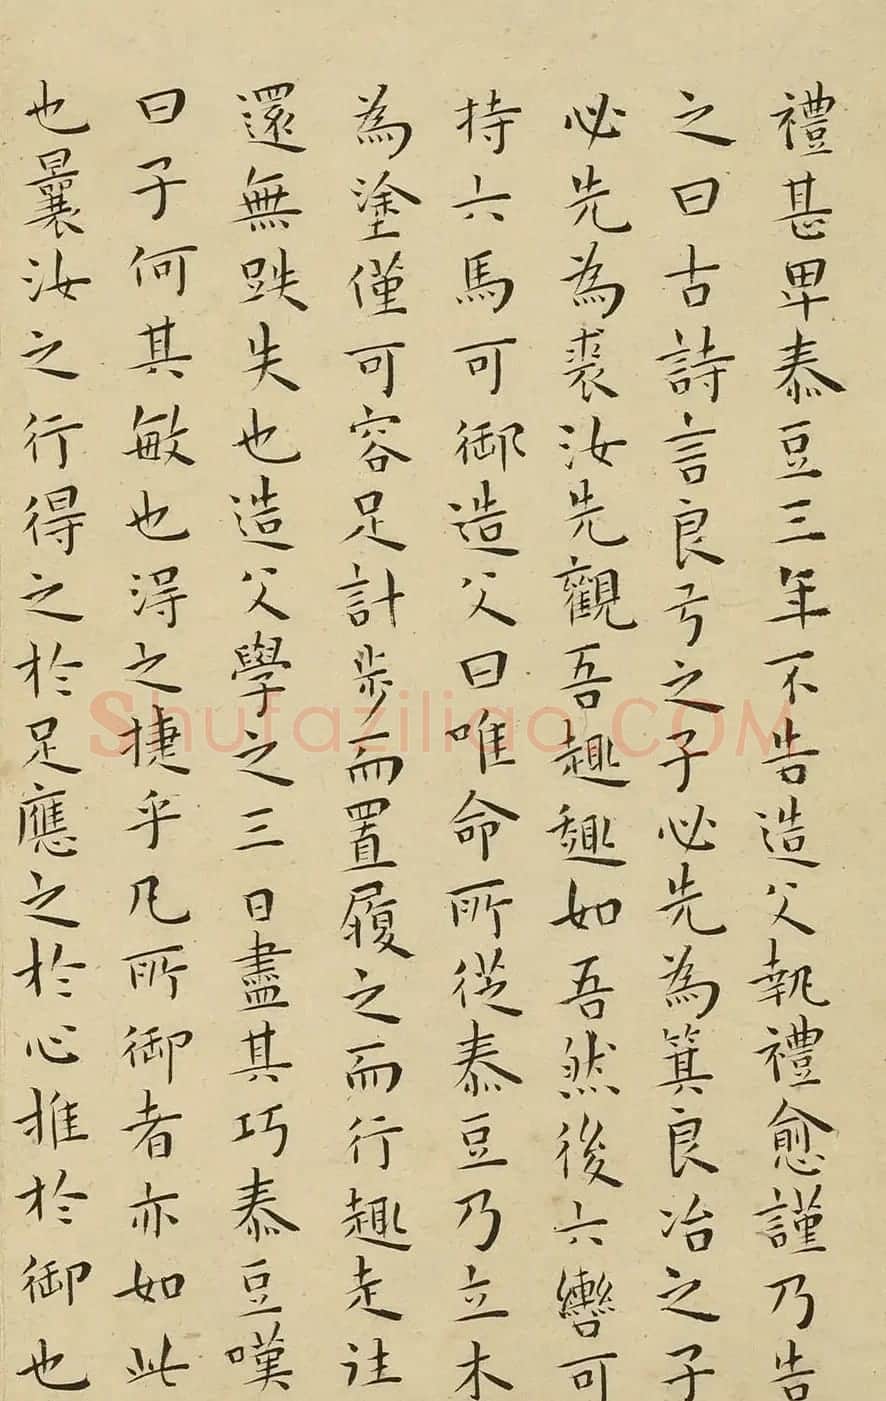 禮甚卑泰豆三年不告造父執禮愈謹乃告
之曰古詩言良弓之子必先為箕良冶之子
必先為裘汝先觀吾趣趣如吾然後六轡可
持六馬可御造父曰唯命所從泰豆乃立木
為塗僅可容足計步而置履之而行趣走往
還無跌失也造父學之三日盡其巧泰豆嘆
曰子何其敏也得之捷乎凡所御者亦如此
也曩汝之行得之於足應之於心推於御也
Shufaziliao.COM